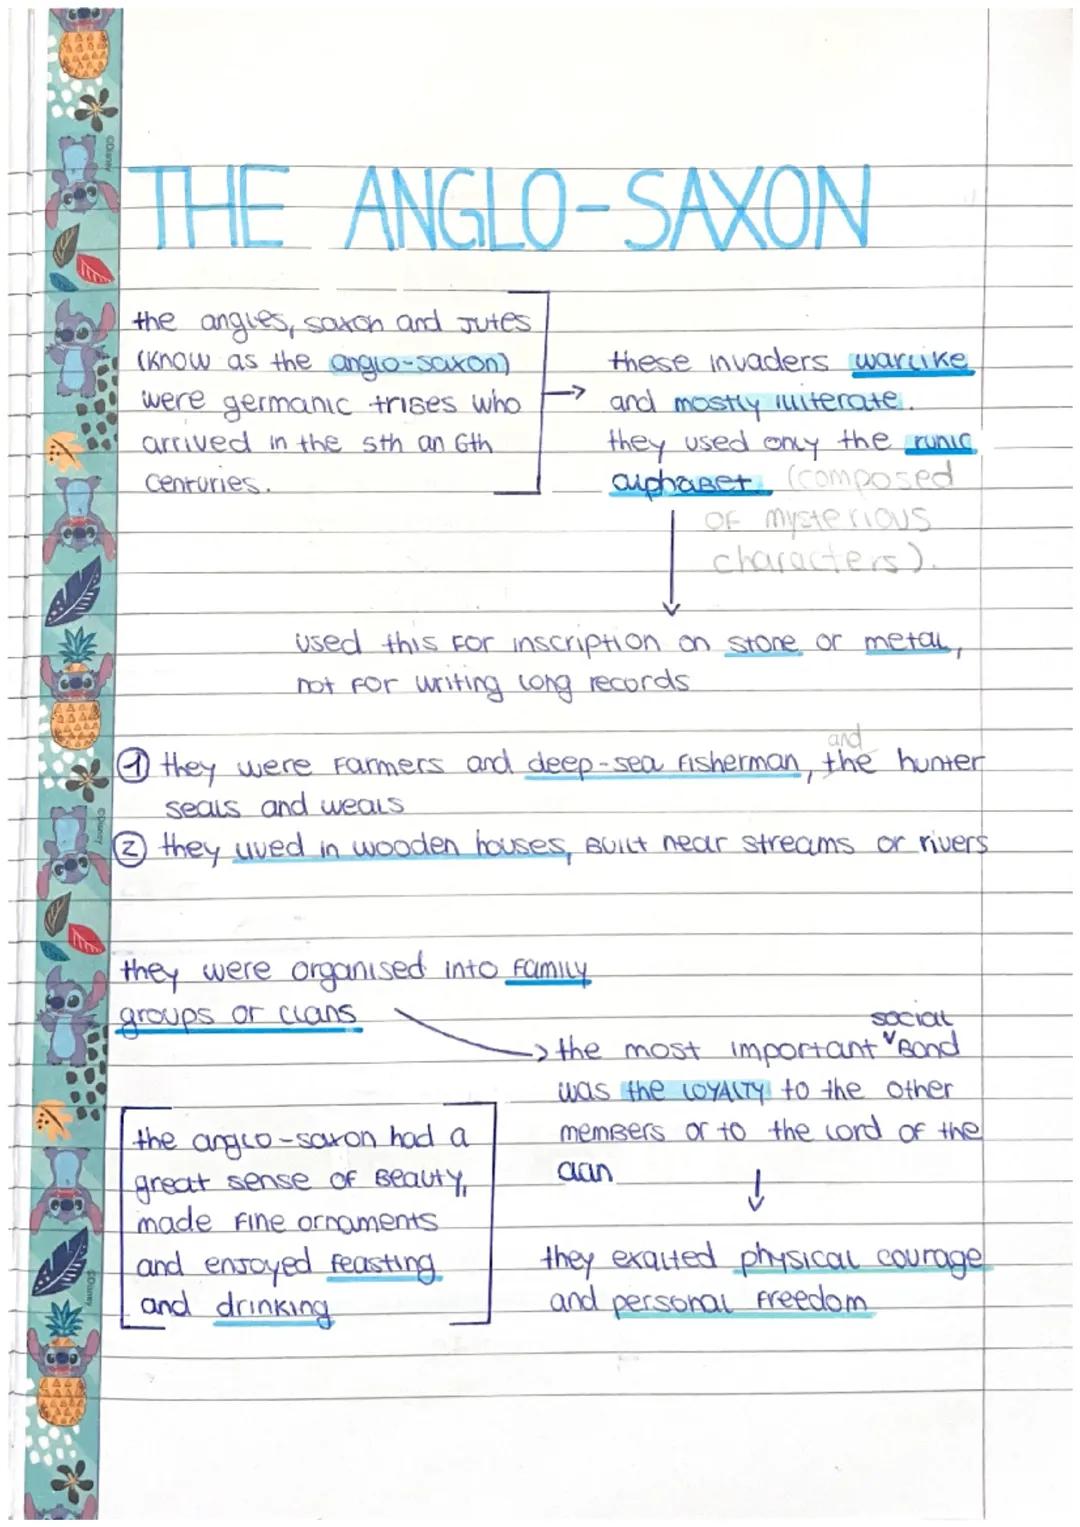 THE ANGLO-SAXON
the angles, saxon and Jutes
(know as the anglo-saxon)
were germanic trises who
arrived in the 5th an 6th
centuries.
these invaders warlike
and mostly illiterate.
they used only the runic
alphabet. (composed
of mysterious
characters).
used this for inscription on stone or metal,
not for writing long records
and
1 they were farmers and deep-sea fisherman, the hunter
seals and weals
2 they lived in wooden houses, built near streams or rivers
they were organised into family
groups or clans
social
→ the most important ᵛ bond
was the LOYALTY to the other
members or to the lord of the
clan
the anglo-saxon had a
great sense of beauty,
made fine ornaments
and enjoyed feasting
and drinking
they exalted physical courage
and personal freedom
©Disney
©Disney
©Disney